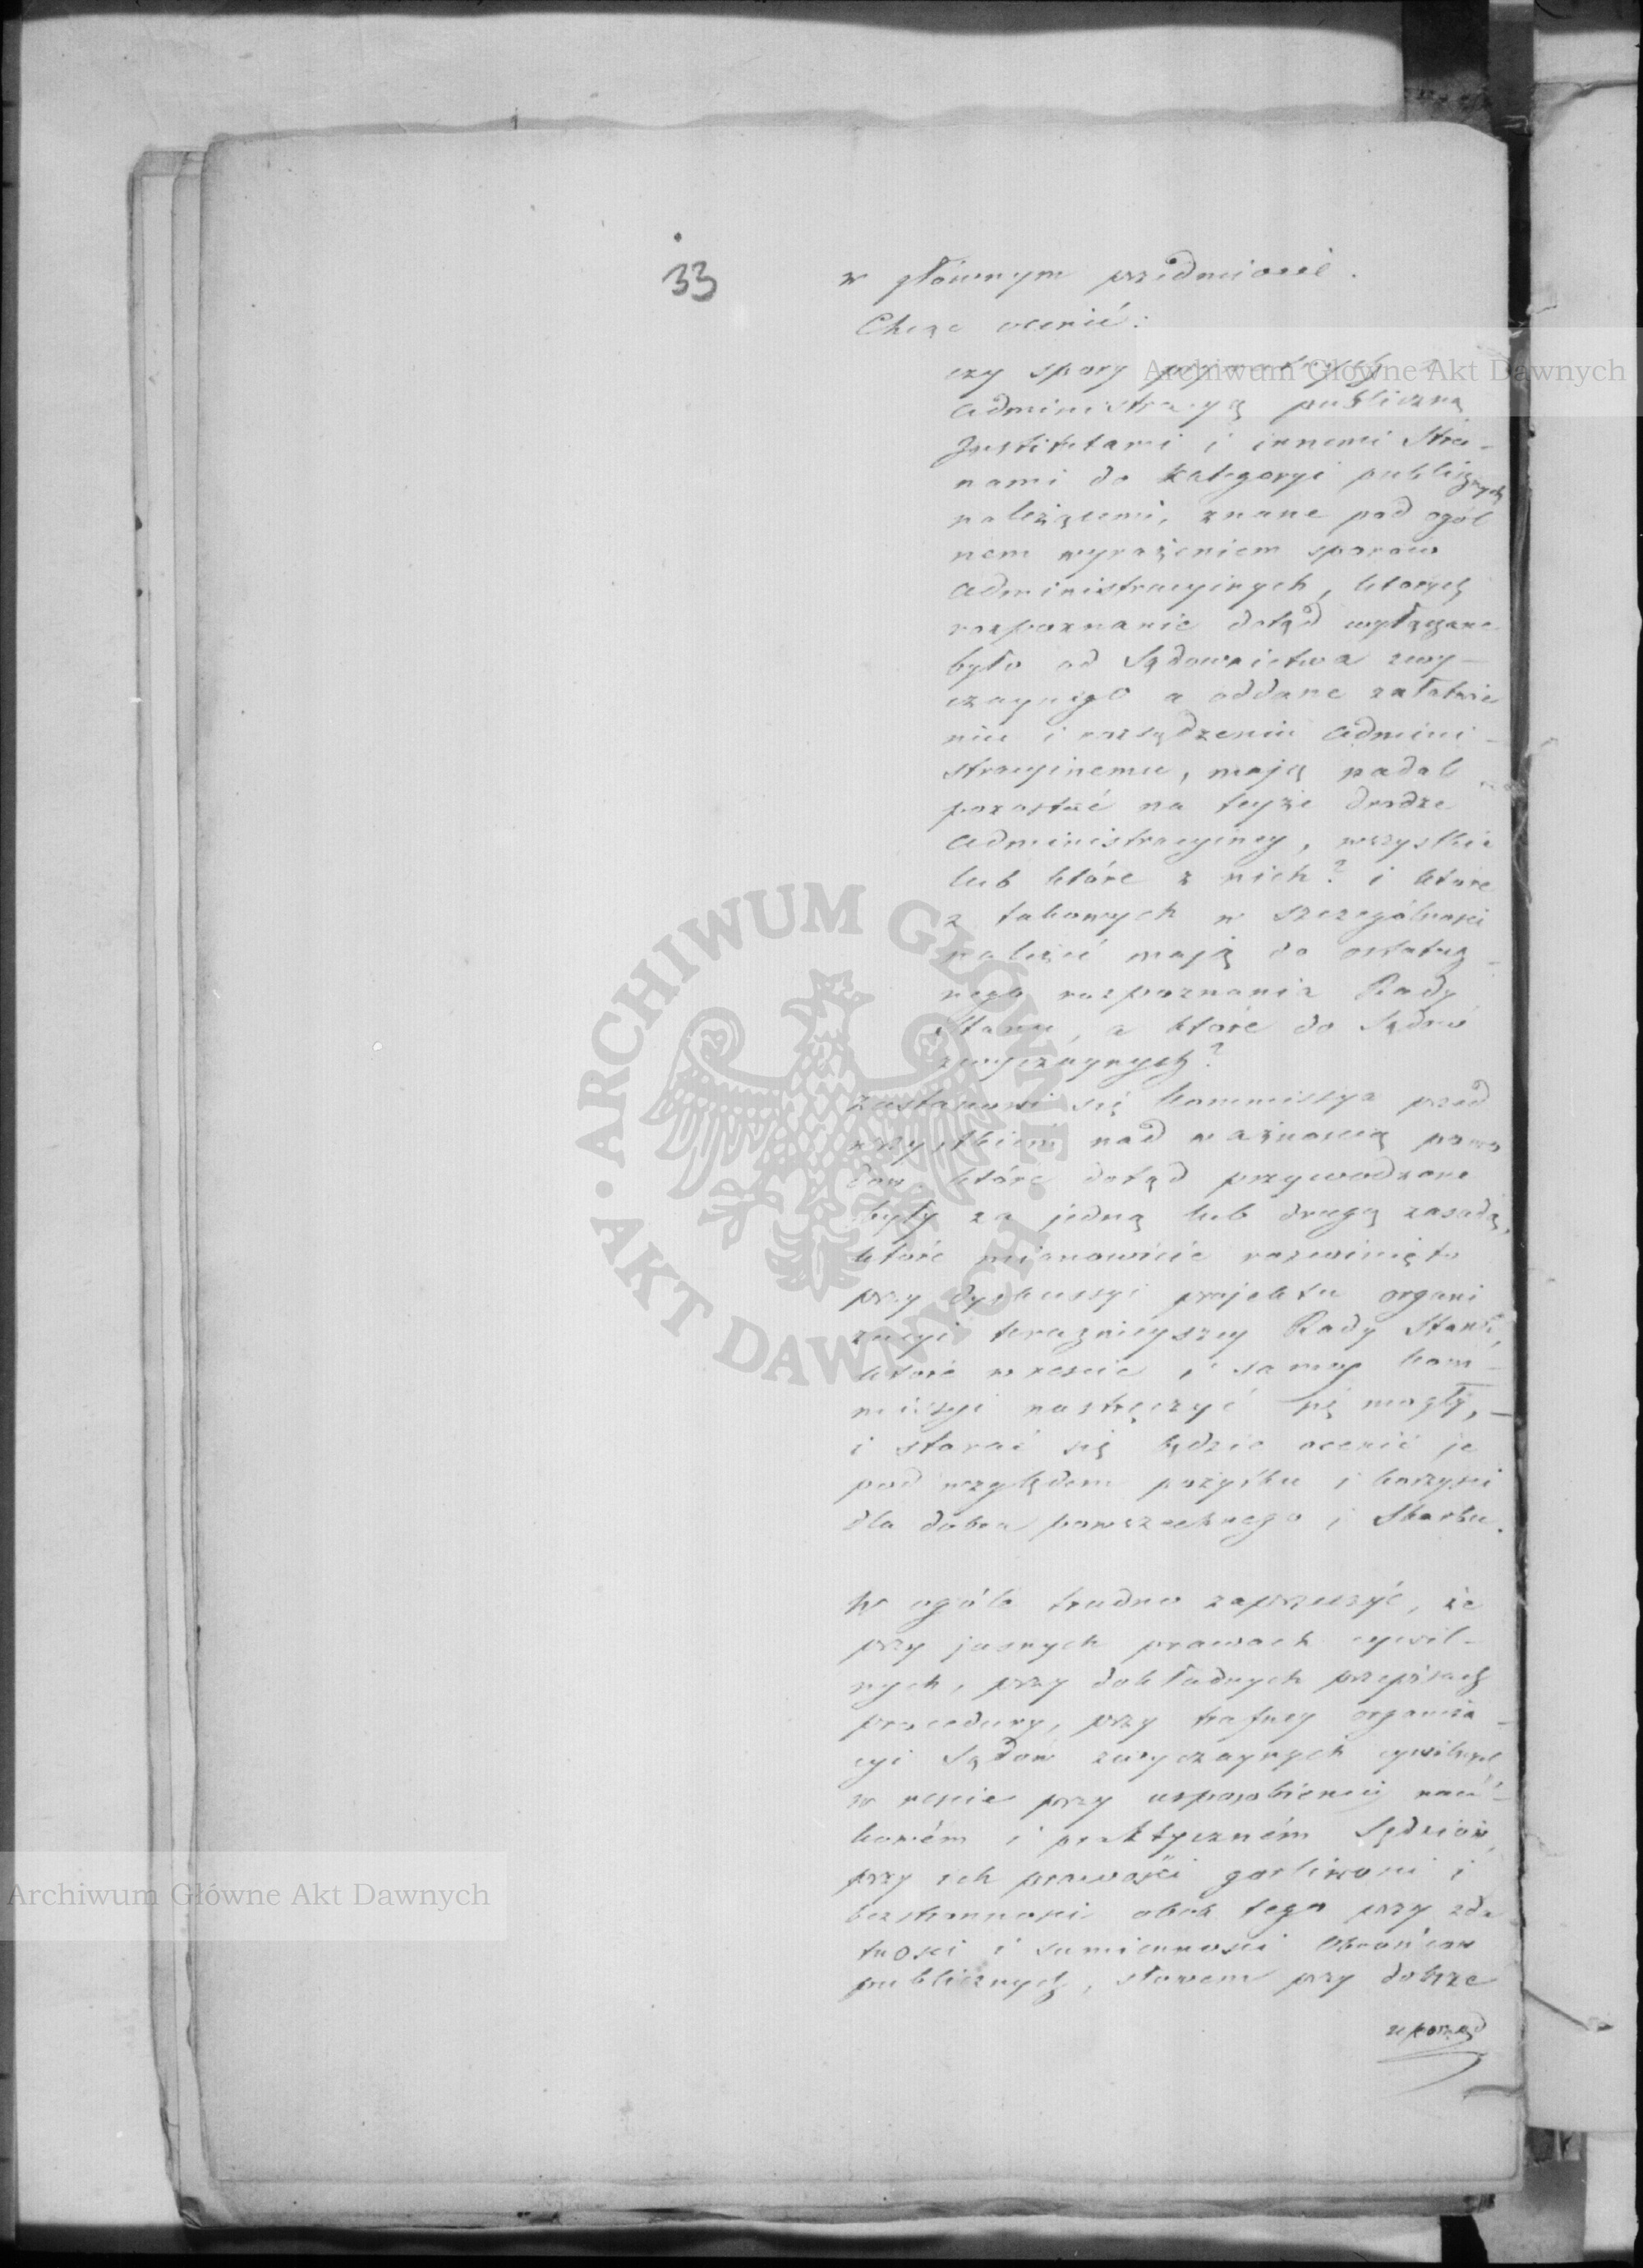 33
w głównym przedmiocie.
Chcąc ocenić:
czy spory prywatnych z
administracyą publiczną
Institutami i innemi Stro-
nami do kategoryi publicznych
należącemi, znane pod ogól
nem wyrażeniem sporów
administracyinych, ktorych
rozpoznanie dotąd wyłączane
było od Sądownictwa zwy-
czaynego a oddane załatwie
niu i rozsądzeniu admini-
stracyinemu, mają nadal
pozostać na teyże drodze
administracyiney, wszystkie
lub które z nich? i ktore
z takowych w szczególności
należeć mają do ostatecz-
nego rozpoznania Rady
Stanu, a które do Sądów
zwyczaynych?
zastanowi się kommissya przed
wszystkiem nad ważnoscią powo
dów, które dotąd przywodzone
były za jedną lub drugą zasadą,
które mianowicie rozwinięto
przy dyskussyi projektu organi
zacyi teraznieyszey Rady Stanu,
które wreszcie i samey kom-
missyi nastręczyć się mogły,-
i starać się będzie ocenić je
pod względem pożytku i korzyści
dla dobra powszechnego i Skarbu.
W ogóle trudno zaprzeczyć, że
przy jasnych prawach cywil-
nych, przy dokładnych przepisach
procedury, przy trafney organiza-
cyi Sądów zwyczaynych cywilnych
w reście przy usposobieniu nau-
kowém i praktyczném Sędziów,
przy ich prawości gorliwosci i
bezstronnosci obok tego przy zda
tnosci i sumiennosci Obrońców
publicznych, słowem przy dobrze
uporząd
Archiwum Główne Akt Dawnych
ARCHIWUM GŁÓWNE • AKT DAWNYCH •
Archiwum Główne Akt Dawnych